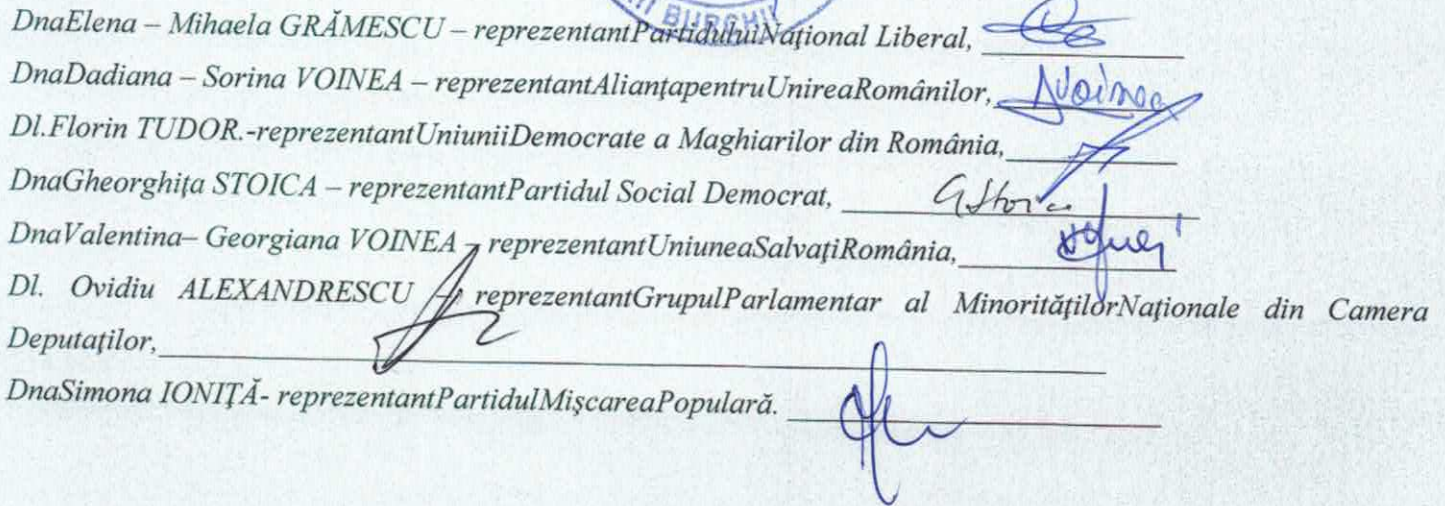 II BURGHII
DnaElena – Mihaela GRĂMESCU – reprezentantPartiduluiNaţional Liberal,
DnaDadiana – Sorina VOINEA – reprezentantAlianţapentruUnireaRomânilor, Voinea
Dl.Florin TUDOR.-reprezentantUniuniiDemocrate a Maghiarilor din România,
DnaGheorghiţa STOICA – reprezentantPartidul Social Democrat, GStoica
DnaValentina– Georgiana VOINEA – reprezentantUniuneaSalvaţiRomânia,
Dl. Ovidiu ALEXANDRESCU – reprezentantGrupulParlamentar al MinorităţilorNaţionale din Camera
Deputaţilor,
DnaSimona IONIŢĂ- reprezentantPartidulMişcareaPopulară.